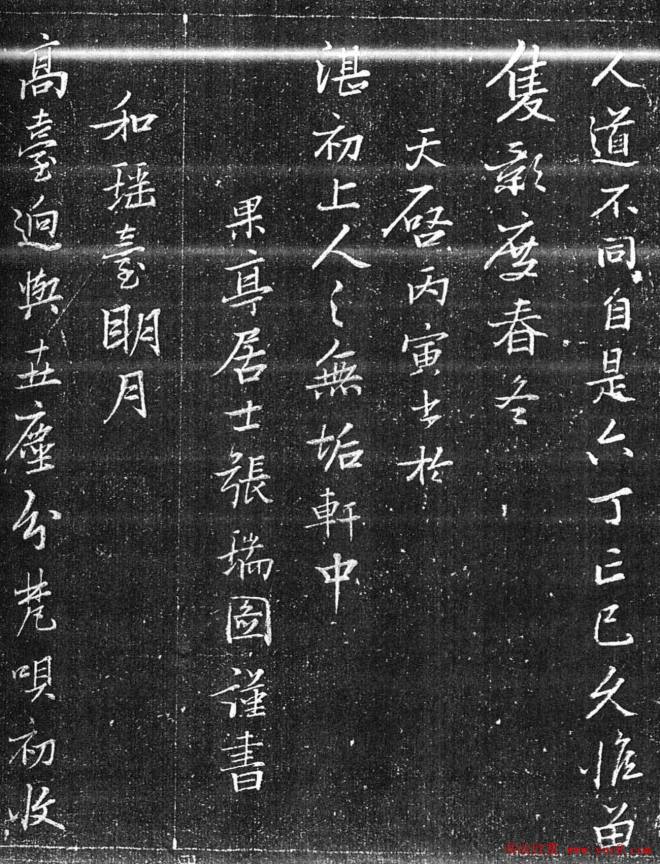 人道不同自是六丁亡已久惟單
隻影度春冬
天啓丙寅書於
湛初上人之無垢軒中
果亭居士張瑞圖謹書
和瑶臺明月
高臺逈與世塵分梵唄初收